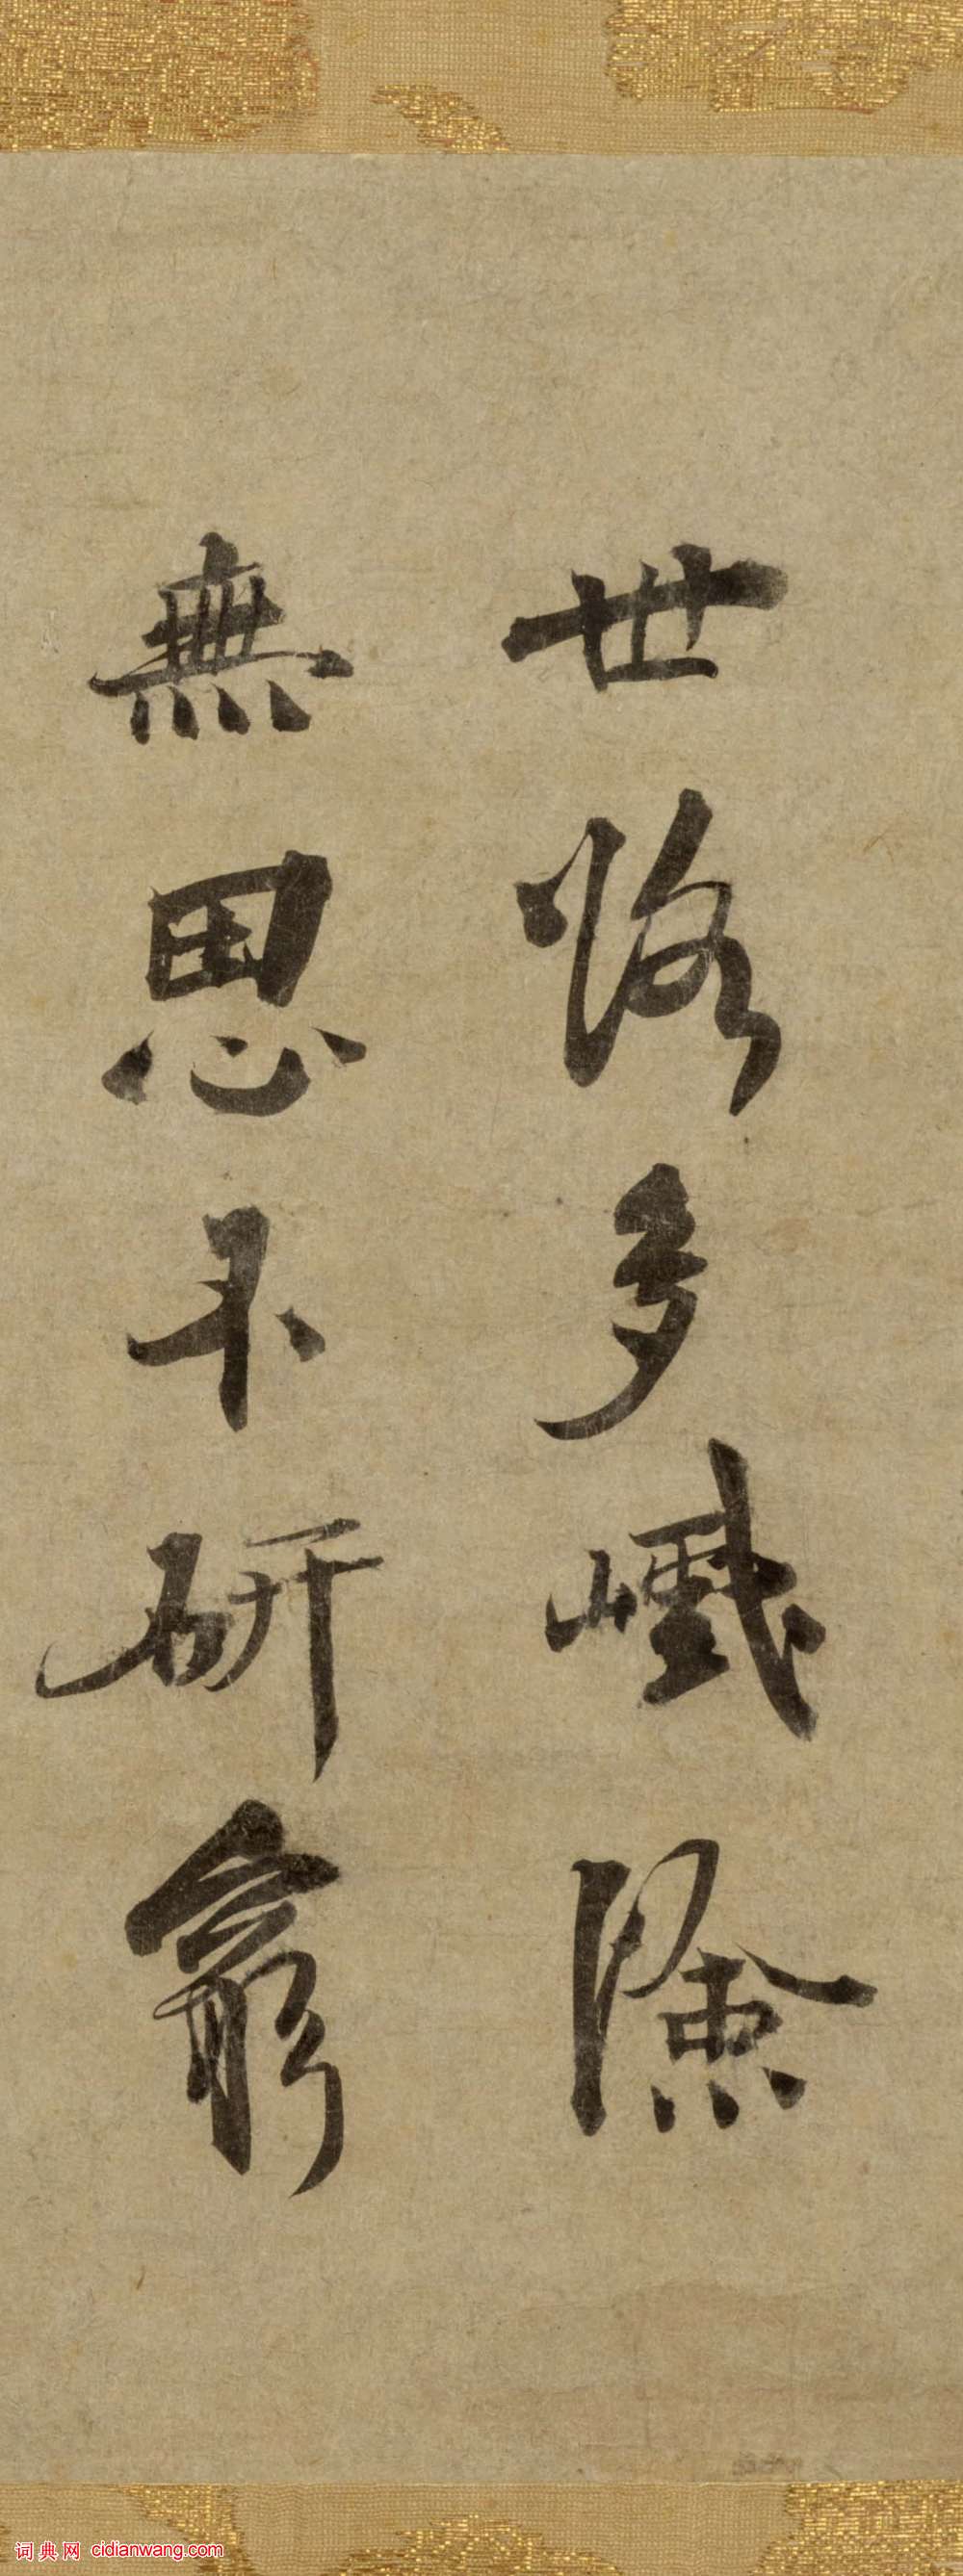 世路多巇險
無思不研窮
词典网 cidianwang.com